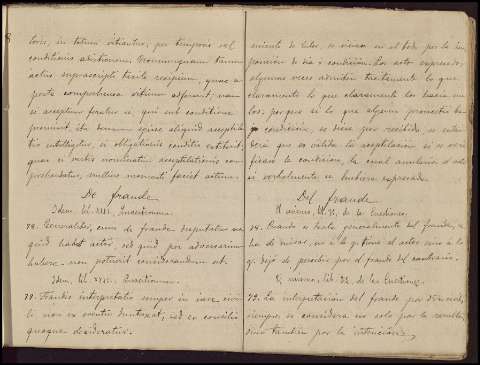 loris, in totum vitiantur, per temporis vel
conditionis adjectionem. Nonnunquam tamen
actus suprascripti tacite recipiunt, quae a-
perte comprehensa vitium adferunt, nam
si acceptum feratur ei, qui sub conditione
promisit, ita demum egisse aliquid acceptila-
tio intelligitur, si obligationis conditio extiterit,
quae si verbis nominatim acceptilationis com-
prehendatur, nullius momenti faciet actum.
De fraude
Idem, lib. XIII. Quaestionum.
78. Generaliter, cum de fraude disputatur non
quid habet actor, sed quid per adversarium
habere non potuerit considerandum est.
Idem, lib. XXXI. Quaestionum.
79. Fraudis interpretatio semper in iure civi-
li non ex eventu duntaxat, sed ex consilio
quoque desideratur.
en el todo por la im-
posicion de dia o condicion. Los actos expresados
algunas veces admiten tacitamente lo que
claramente
los, porque si lo que alguno prometió ba-
jo condicion, se diese por recibido se enten-
derá que es válida la aceptilacion si se veri-
ficase la condicion, la cual anularia el acto
si verbalmente se hubiera expresado.
Del fraude
El mismo, lib. de las Cuestiones.
78. Cuando se trata generalmente del fraude, se
ha de mirar, no á lo q. tiene el actor, sino á lo
q. dejó de percibir por el fraude del contrario.
El mismo, lib. 32. de las Cuestiones.
79. La interpretacion del fraude por dro civil,
siempre se considera no solo por la resulta,
sino tambien por la intencion.